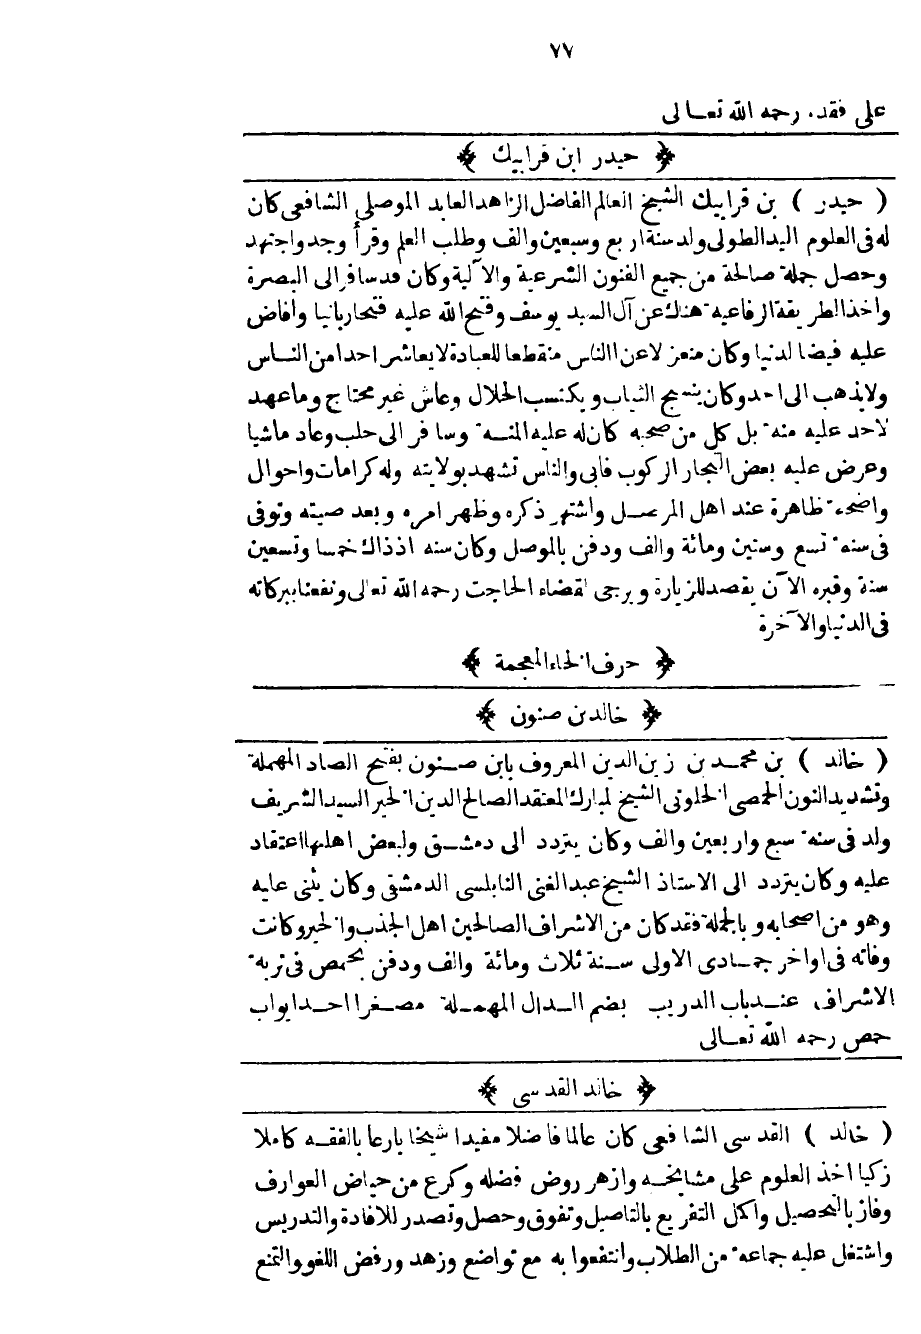 ٧٧
على فقده رحمه الله تعالى
﴿ حيدر ابن قرابيك ﴾
( حيدر ) بن قرابيك الشيخ العالم الفاضل الزاهد العابد الموصلي الشافعى كان
له فى العلوم اليد الطولى ولد سنة اربع وسبعين والف وطلب العلم وقرأ وجد واجتهد
وحصل جملة صالحة من جميع الفنون الشرعية والآلية وكان قد سافر الى البصرة
واخذ الطريقة الرفاعية هناك عن آل السيد يوسف وفتح الله عليه فتحا ربانيا وافاض
عليه فيضا لدنيا وكان منعزلا عن االناس منقطعا للعبادة لا يعاشر احدا من النـاس
ولا يذهب الى احد وكان ينسج الثياب ويكتسب الحلال وعاش غير محتاج وما عهد
لاحد عليه منة بل كل من صحبه كان له عليه المنـة وسافر الى حلب وعاد ماشيا
وعرض عليه بعض التجار الركوب فابى والناس تشهد بولايته وله كرامات واحوال
واضحة ظاهرة عند اهل الموصل واشتهر ذكره وظهر امره وبعد صيته وتوفى
فى سنة تسع وستين ومائة والف ودفن بالموصل وكان سنه اذ ذاك خمسا وتسعين
سنة وقبره الآن يقصد للزيارة ويرجى لقضاء الحاجت رحمه الله تعالى ونفعنا ببركاته
فى الدنيا والآخرة
﴿ حرف الخاء المعجمة ﴾
﴿ خالد بن صنون ﴾
( خالد ) بن محمـد بن زين الدين المعروف بابن صـنون بفتح الصاد المهملة
وتشديد النون الحمصى الخلوتى الشيخ المبارك المعتقد الصالح الدين الخير السيد الشريف
ولد فى سنة سبع واربعين والف وكان يتردد الى دمشـق ولبعض اهلها اعتقاد
عليه وكان يتردد الى الاستاذ الشيخ عبد الغنى النابلسى الدمشقى وكان يثنى عليه
وهو من اصحابه وبالجملة فقد كان من الاشراف الصالحين اهل الجذب والخير وكانت
وفاته فى اواخر جمـادى الاولى سـنة ثلاث ومائة والف ودفن بحمص فى تربة
الاشراف عنـد باب الدريب بضم الـدال المهمـلة مصـغرا احـد ابواب
حمص رحمه الله تعـالى
﴿ خالد القدسى ﴾
( خالد ) القدسى الشافعى كان عالما فاضلا مفيدا شيخا بارعا بالفقـه كاملا
زكيا اخذ العلوم على مشايخـه وازهر روض فضله وكرع من حياض العوارف
وفاز بالتحصيل واكمل التفريع بالتاصيل وتفوق وحصل وتصدر للافادة والتدريس
واشتغل عليه جماعة من الطلاب وانتفعوا به مع تواضع وزهد ورفض اللغو والتمنع